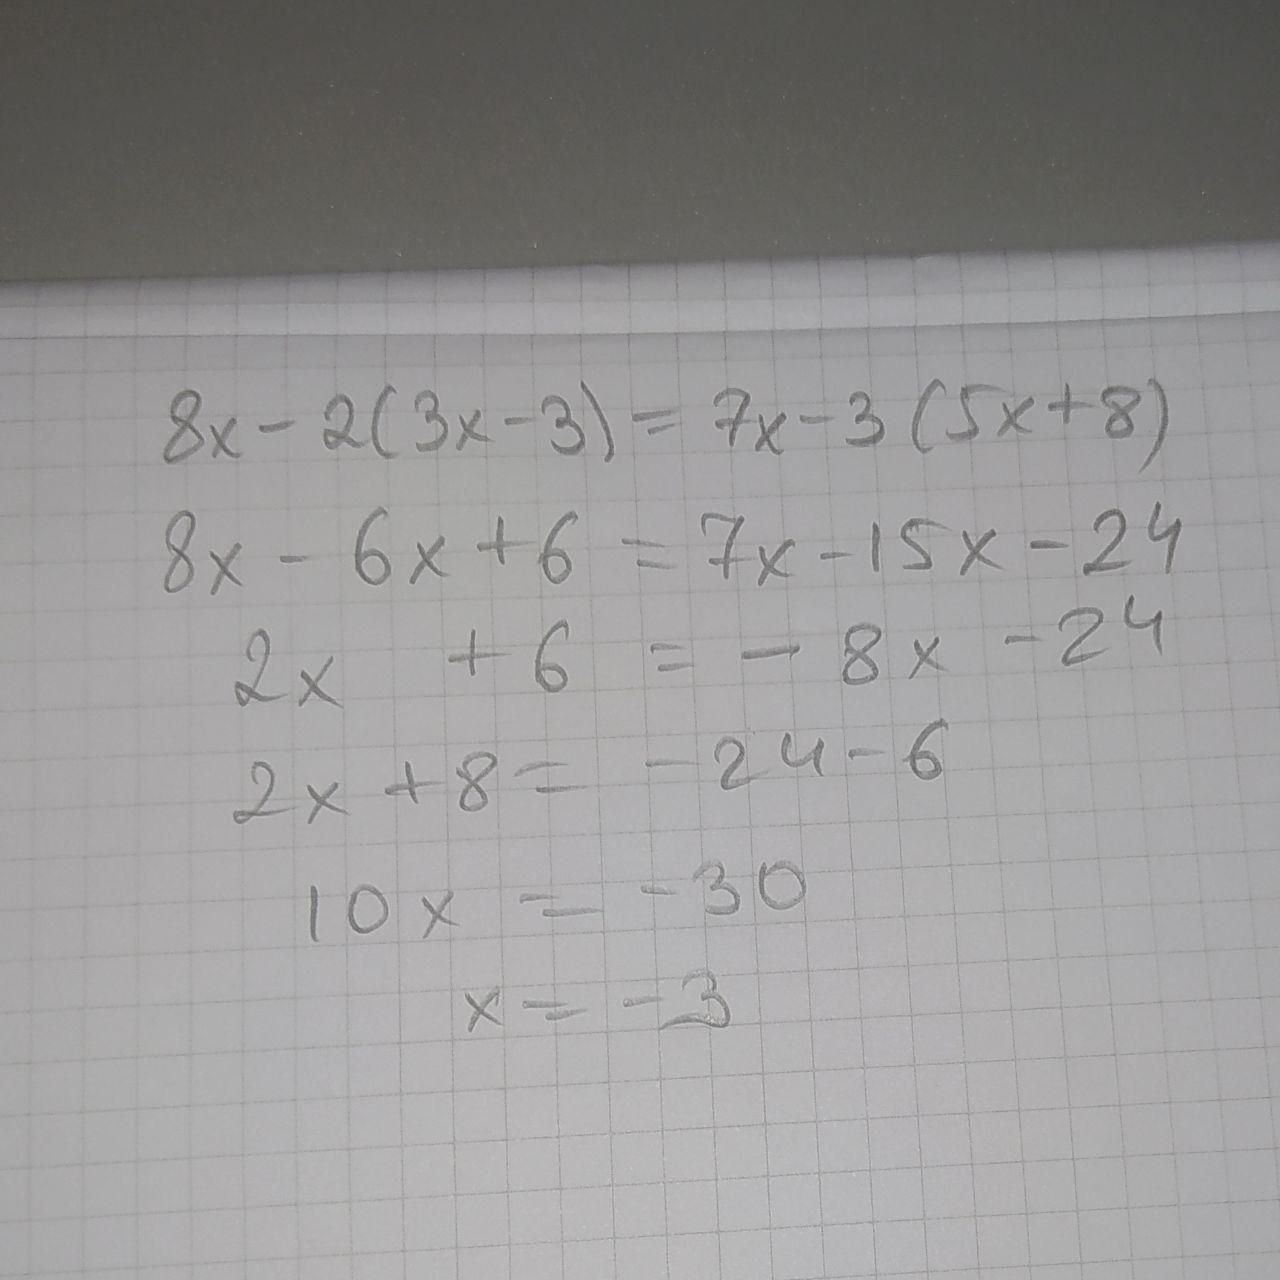 8x - 2(3x - 3) = 7x - 3(5x + 8)
8x - 6x + 6 = 7x - 15x - 24
2x + 6 = - 8x - 24
2x + 8 = - 24 - 6
10x = - 30
x = - 3